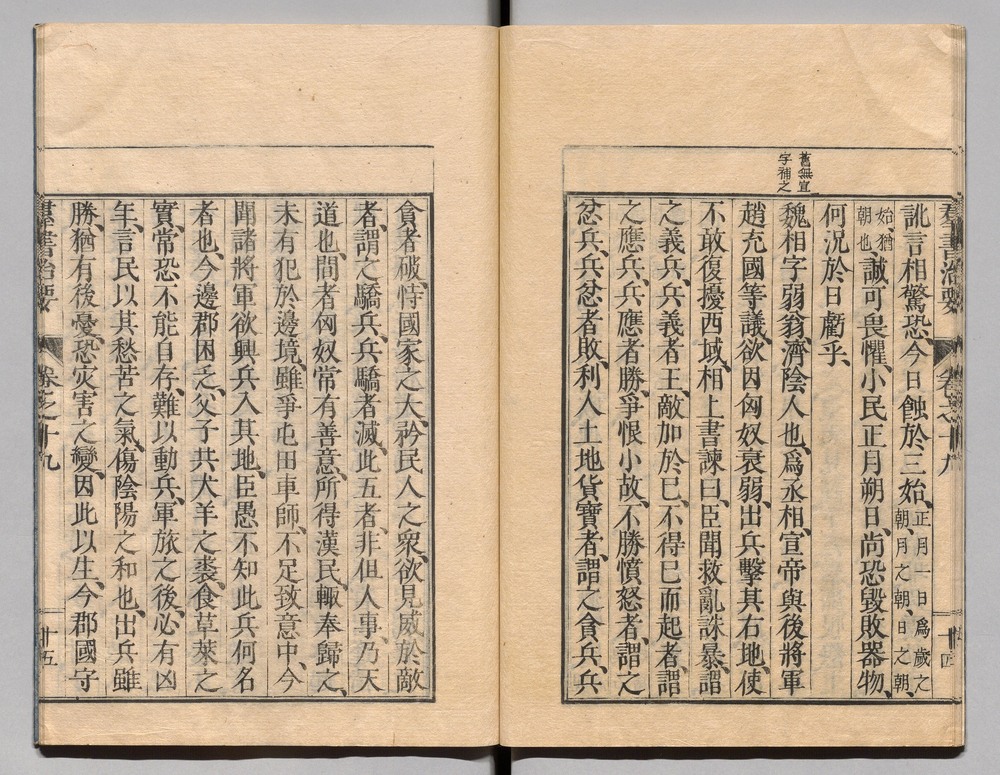 羣書治要 卷之十九 十四
舊無宣
字補之
訛言相驚恐、今日蝕於三始、正月一日爲歲之朝、月之朝、日之朝、
始、猶朝也、誠可畏懼、小民正月朔日、尚恐毀敗器物、
何況於日虧乎、
魏相字弱翁、濟陰人也、爲丞相、宣帝與後將軍
趙充國等議、欲因匈奴衰弱、出兵擊其右地、使
不敢復擾西域、相上書諫曰、臣聞救亂誅暴、謂
之義兵、兵義者王、敵加於已、不得已而起者、謂
之應兵、兵應者勝、爭恨小故、不勝憤怒者、謂之
忿兵、兵忿者敗、利人土地貨寶者、謂之貪兵、兵
貪者破、恃國家之大、矜民人之衆、欲見威於敵
者、謂之驕兵、兵驕者滅、此五者、非但人事、乃天
道也、間者匈奴常有善意、所得漢民、輙奉歸之、
未有犯於邊境、雖爭屯田車師、不足致意中、今
聞諸將軍欲興兵入其地、臣愚不知此兵何名
者也、今邊郡困乏、父子共犬羊之裘、食草萊之
實、常恐不能自存、難以動兵、軍旅之後、必有凶
年、言民以其愁苦之氣、傷陰陽之和也、出兵雖
勝、猶有後憂、恐灾害之變、因此以生、今郡國守
羣書治要 卷之十九 十五